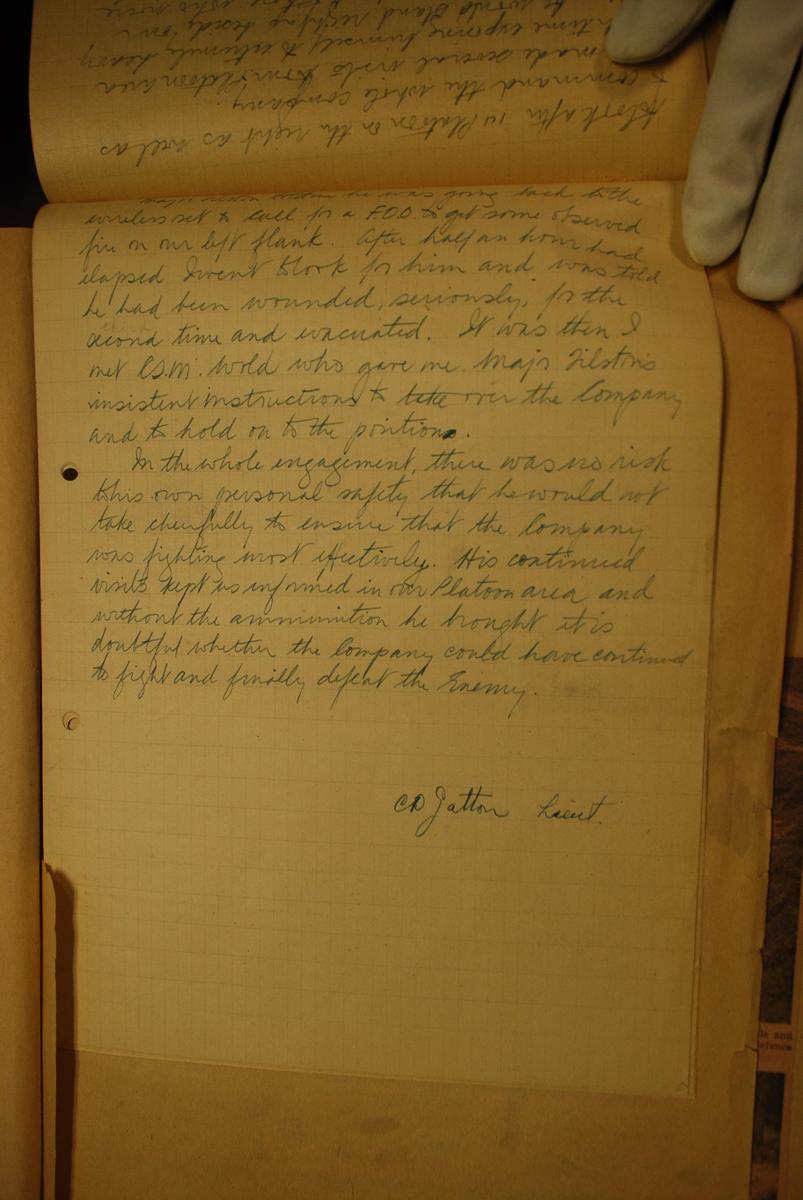 to look after 10 Platoon on the right as well as
command the whole company.
made several visits from Platoon area
time exposing himself to extremely heavy
he was going back to the
wireless set to call for a F.O.O. to get some observed
fire on our left flank. After half an hour had
elapsed I went to look for him and was told
he had been wounded, seriously, for the
second time and evacuated. It was then I
met C.S.M. who gave me Major Tilston's
insistent instructions to take over the Company
and to hold on to the position.
In the whole engagement, there was no risk
to his own personal safety that he would not
take cheerfully to ensure that the Company
was fighting most effectively. His continued
visits kept us informed in our Platoon area and
without the ammunition he brought it is
doubtful whether the Company could have continued
to fight and finally defeat the Enemy.
CD Gatton Lieut.